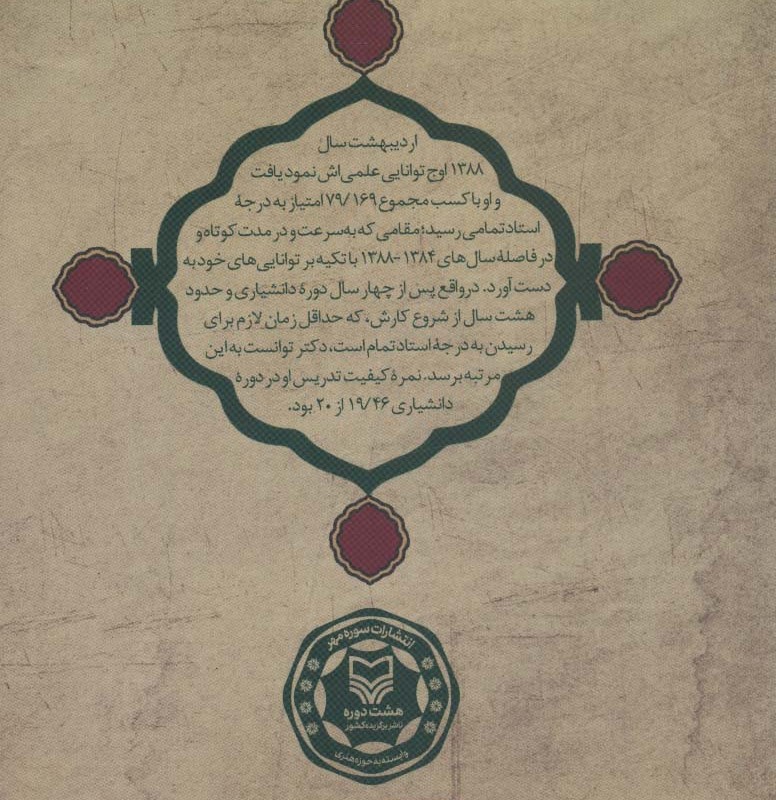 اردیبهشت سال
۱۳۸۸ اوج توانایی علمی‌اش نمود یافت
و او با کسب مجموع ۷۹/۱۶۹ امتیاز به درجهٔ
استاد تمامی رسید؛ مقامی که به سرعت و در مدت کوتاه و
در فاصلهٔ سال‌های ۱۳۸۴-۱۳۸۸ با تکیه بر توانایی‌های خود به
دست آورد. درواقع پس از چهار سال دورهٔ دانشیاری و حدود
هشت سال از شروع کارش، که حداقل زمان لازم برای
رسیدن به درجهٔ استاد تمام است، دکتر توانست به این
مرتبه برسد. نمرهٔ کیفیت تدریس او در دورهٔ
دانشیاری ۱۹/۴۶ از ۲۰ بود.
انتشارات سوره مهر
هشت دوره
ناشر برگزیده کشور
وابسته به حوزه هنری